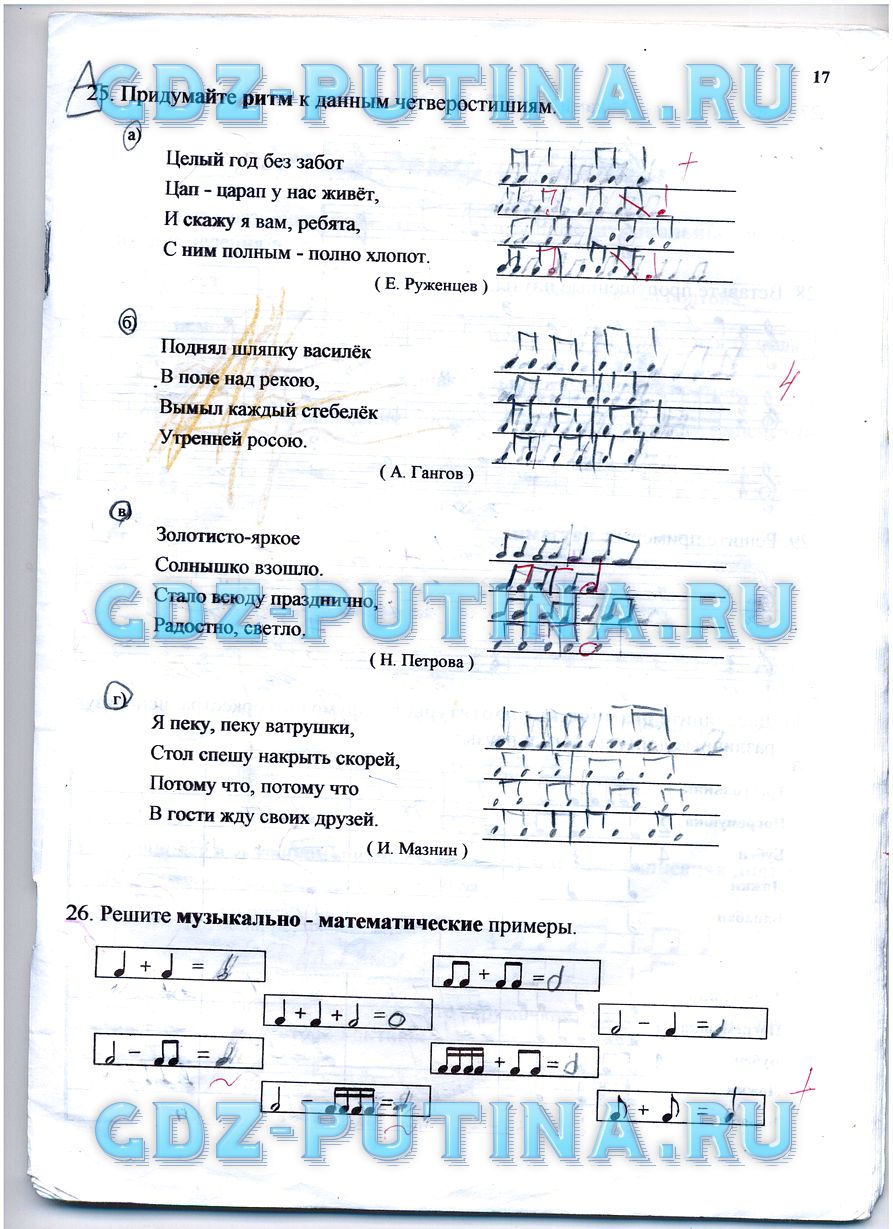 GDZ-PUTINA.RU
17
А
25. Придумайте ритм к данным четверостишиям.
а)
Целый год без забот
Цап - царап у нас живёт,
И скажу я вам, ребята,
С ним полным - полно хлопот.
( Е. Руженцев )
б)
Поднял шляпку василёк
В поле над рекою,
Вымыл каждый стебелёк
Утренней росою.
( А. Гангов )
4
в)
Золотисто-яркое
Солнышко взошло.
Стало всюду празднично,
Радостно, светло.
GDZ-PUTINA.RU
( Н. Петрова )
г)
Я пеку, пеку ватрушки,
Стол спешу накрыть скорей,
Потому что, потому что
В гости жду своих друзей.
( И. Мазнин )
26. Решите музыкально - математические примеры.
GDZ-PUTINA.RU